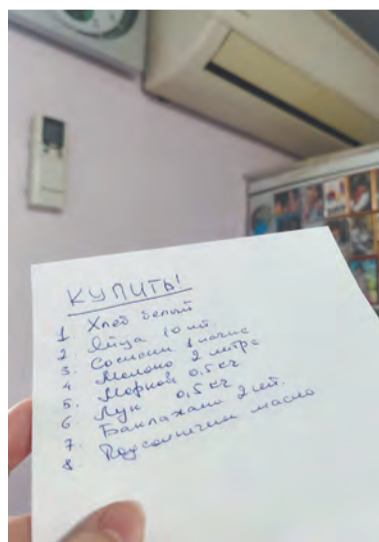 КУПИТЬ!
1 Хлеб белый
2. Яйца 10 шт.
3. Сосиски 1 пачка
4 Молоко 2 литра
5. Морковь 0,5 кг
6 Лук 0,5 кг
7. Баклажаны 2 шт.
8. Подсолнечн масло